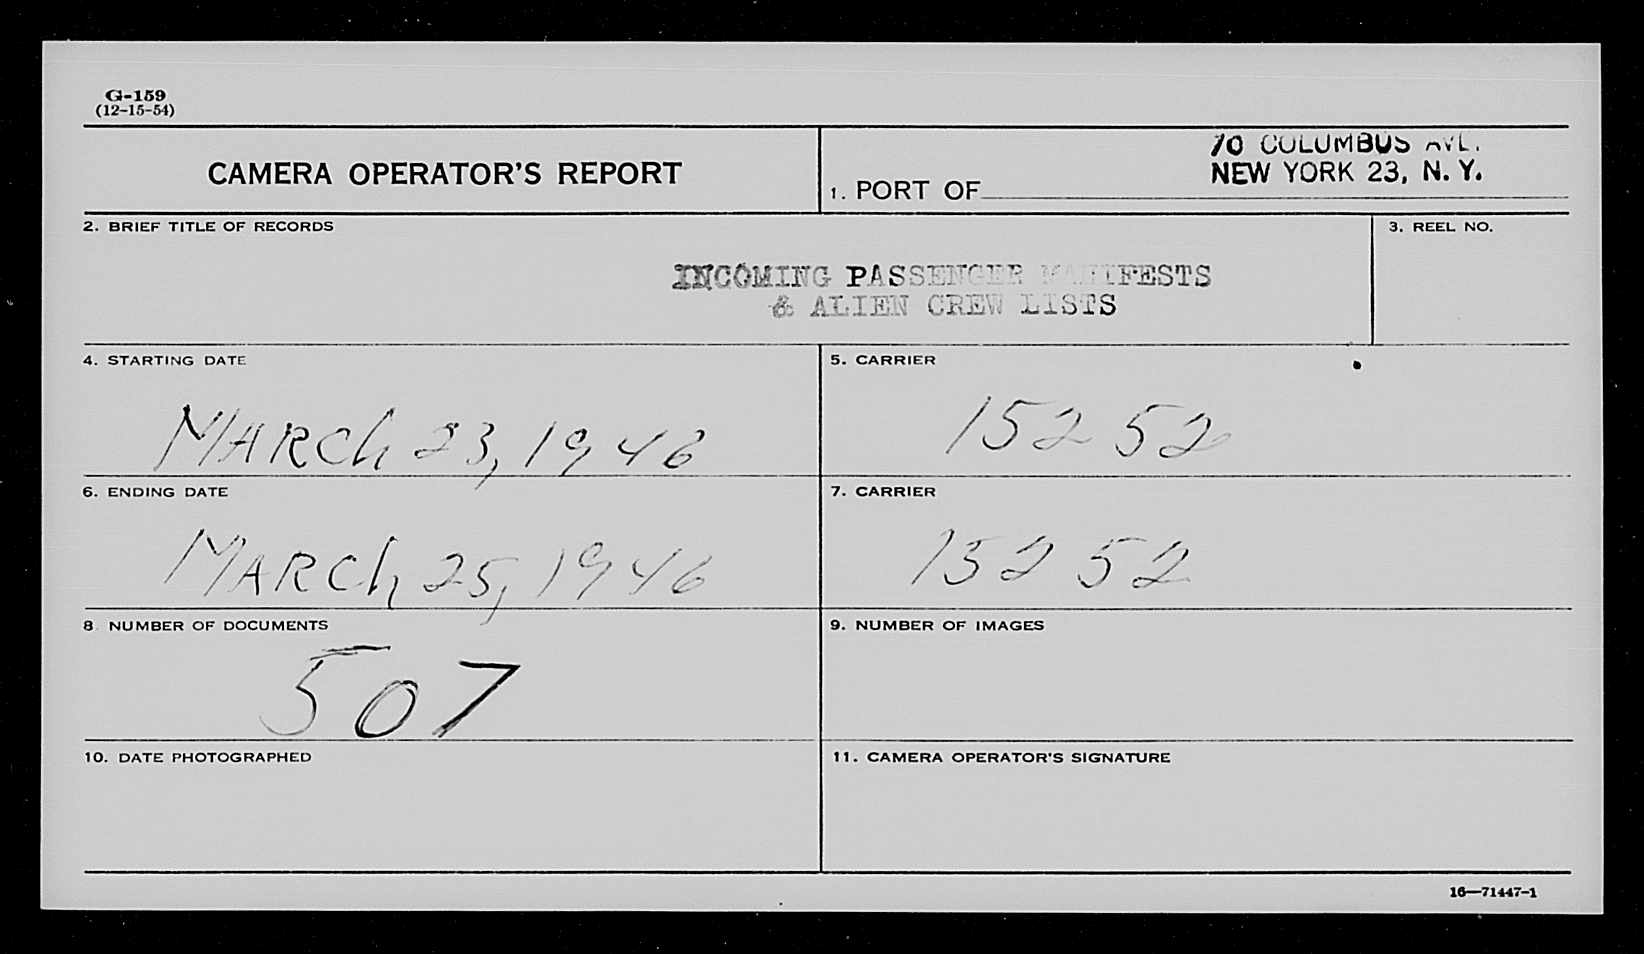 G-159
(12-15-54)
CAMERA OPERATOR'S REPORT
70 COLUMBUS AVE.
NEW YORK 23, N. Y.
1. PORT OF
2. BRIEF TITLE OF RECORDS
3. REEL NO.
INCOMING PASSENGER MANIFESTS
& ALIEN CREW LISTS
4. STARTING DATE
5. CARRIER
MARCh 23, 1946
15252
6. ENDING DATE
7. CARRIER
MARCh 25, 1946
15252
8 NUMBER OF DOCUMENTS
9. NUMBER OF IMAGES
507
10. DATE PHOTOGRAPHED
11. CAMERA OPERATOR'S SIGNATURE
16—71447-1